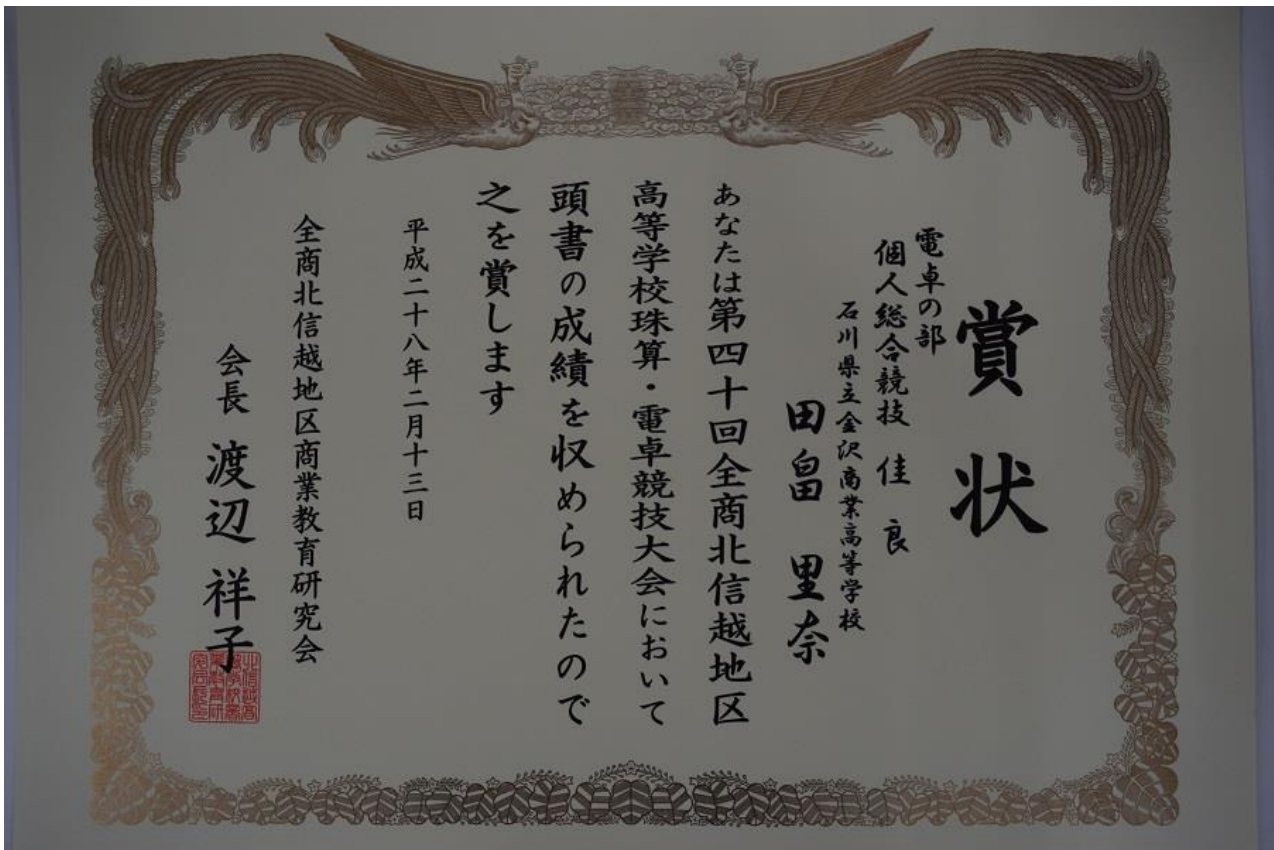 賞状
電卓の部
個人総合競技 佳良
石川県立金沢商業高等学校
田畠 里奈
あなたは第四十回全商北信越地区
高等学校珠算・電卓競技大会において
頭書の成績を収められたので
之を賞します
平成二十八年二月十三日
全商北信越地区商業教育研究会
会長 渡辺 祥子